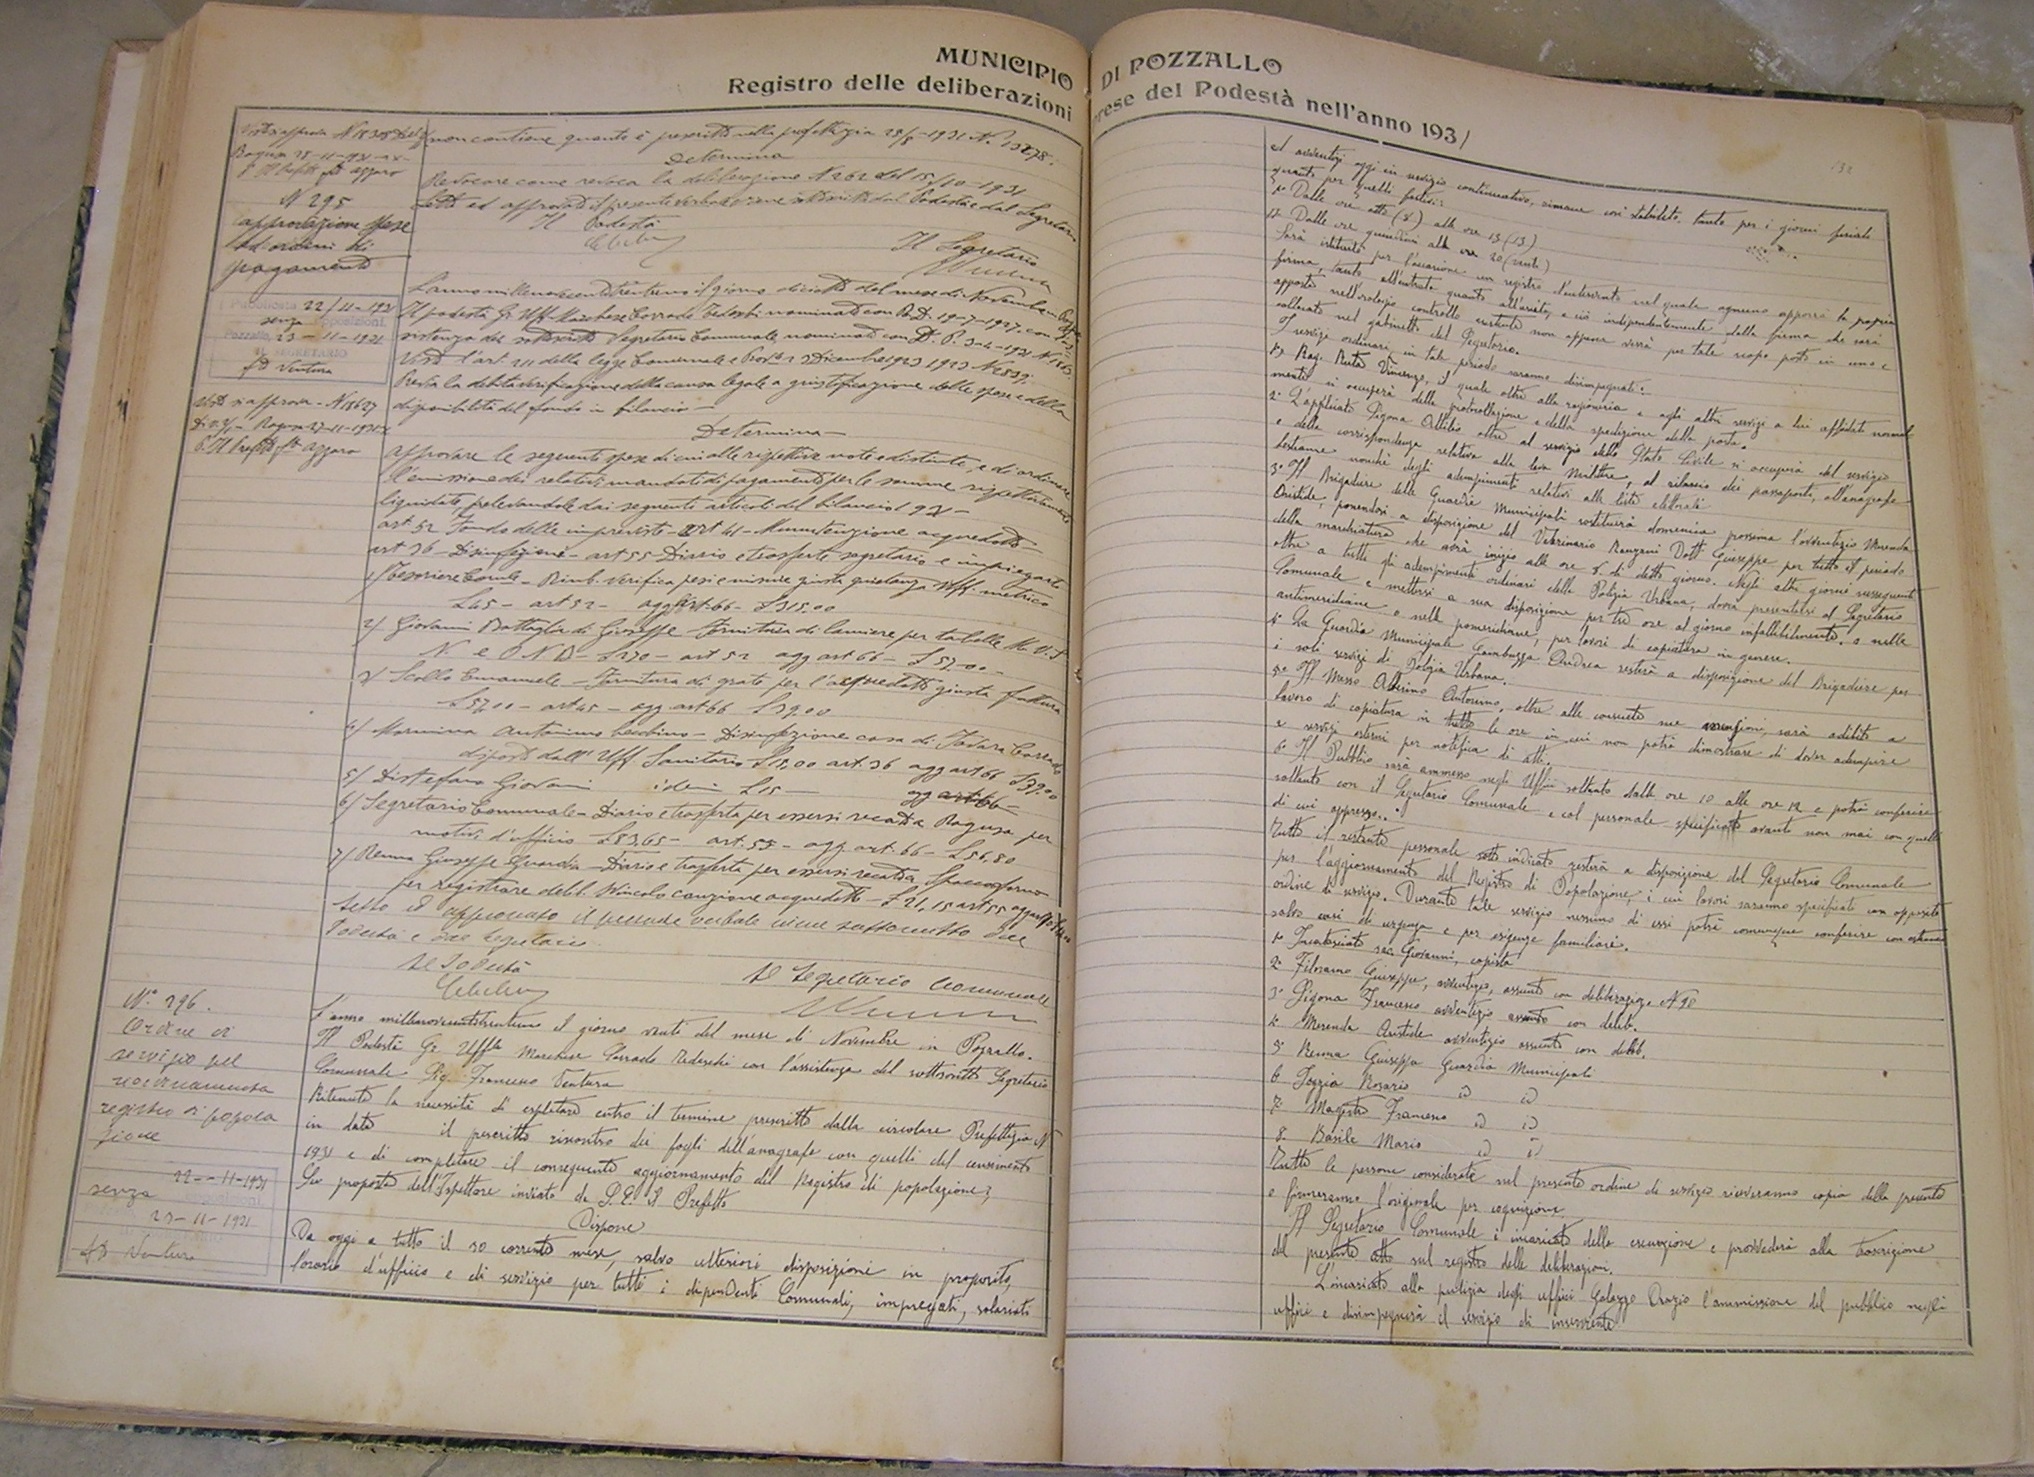 MUNICIPIO DI POZZALLO
Registro delle deliberazioni prese del Podestà nell'anno 1931
132
Ragusa 23-11-931
N 295
approvazione spese
ed ordini di
pagamento
22/11-1931
senza opposizioni.
Pozzallo, 23-11-1931
IL SEGRETARIO
fto Ventura
Visto si approva - N 18627
Ragusa 27-11-1931
P. Il Prefetto fto Azzaro
N° 296.
Ordine di
servizio pel
riordinamento
registro di popola
zione
22-11-1931
senza
23-11-1931
fto Ventura
non contiene quanto è prescritto nella prefettizia 28/8-1931 N. 13278.
Determina
Revocare come revoca la deliberazione N 262 del 15/10-1931
Letto ed approvato il presente verbale viene sottoscritto dal Podestà e dal Segretario
Il Podestà
Il Segretario
L'anno millenovecentotrentuno il giorno diciotto del mese di Novembre in Pozzallo
Il podestà Gr. Uff. Marchese Corrado Tedeschi nominato con R.D. 19-7-1927. con
sistenza del sottoscritto Segretario Comunale nominato con D. P. 3-4-1931
Visto l'art. 211 della legge Comunale e Prov. 30 Dicembre 1923 N 2839.
Previa la debita verificazione della causa legale a giustificazione delle spese e della
disponibilità del fondo in bilancio -
Determina -
Approvare le seguenti spese di cui alle rispettive note e distinte, e di ordinare
l'emissione dei relativi mandati di pagamento per le somme rispettivamente
liquidate, prelevandole dai seguenti articoli del bilancio 1931 -
art 52 Fondo delle impreviste - art 41 - Manutenzione acquedotto -
art 36 - Disinfezione - art 55 Diario e trasferte segretario e impiegati
1/ Tesoriere Com.le - Rimb. verifica pesi e misure giusta quietanza Uff. metrico
£ 45 - art 52 - agg art. 66 - £ 315,00
2/ Giovanni Battaglia di Giuseppe - Fornitura di lamiere per tabelle M. V. S
N e O N B - £ 270 - art 52 agg art 66 - £ 57.00 -
3/ Scollo Emanuele - Fornitura di grate per l'acquedotto giusta fattura
£ 57,00 - art 45 - agg art 66 £ 39,00
4/ Mormina Antonino becchino - Disinfezione casa di Todaro Corrado
disposta dall'Uff Sanitario £ 15,00 art 36 agg art 66 £ 39,00
5/ Distefano Giovanni idem £ 15 - agg art 66 -
6/ Segretario Comunale - Diario e trasferta per essersi recato a Ragusa per
motivi d'ufficio £ 83,65 - art. 55 - agg art. 66 - £ 56,80
7/ Renna Giuseppe Guardia - Diario e trasferta per essersi recato a Spaccaforno
per registrare delib. Vincolo cauzione acquedotto - £ 21,15 art 55
Letto ed approvato il presente verbale viene sottoscritto dal
Podestà e dal Segretario
Il Podestà
Il Segretario Comunale
L'anno millenovecentotrentuno il giorno venti del mese di Novembre in Pozzallo.
Il Podestà Gr. Uff.le Marchese Corrado Tedeschi con l'assistenza del sottoscritto Segretario
Comunale Sig. Francesco Ventura
Ritenuta la necessità di espletare entro il termine prescritto dalla circolare Prefettizia N
in data il prescritto riscontro dei fogli dell'anagrafe con quelli del censimento
1931 e di completare il conseguente aggiornamento del Registro di popolazione;
Su proposta dell'Ispettore inviato da S. E. il Prefetto
Dispone
Da oggi a tutto il 30 corrente mese, salvo ulteriori disposizioni in proposito,
l'orario d'ufficio e di servizio per tutti i dipendenti Comunali, impiegati, salariati
ed avventizi oggi in servizio continuativo, rimane così stabilito, tanto per i giorni feriali
quanto per quelli festivi:
1° Dalle ore otto (8) alle ore 13 (13)
2° Dalle ore quindici alle ore 20 (venti)
Sarà istituito per l'occasione un registro d'intervento nel quale ognuno apporrà la propria
firma, tanto all'entrata quanto all'uscita, e ciò indipendentemente dalla firma che sarà
apposta nell'orologio controllo esistente non appena verrà per tale scopo posto in uno e
collocato nel gabinetto del Segretario.
I servizi ordinari in tale periodo saranno disimpegnati:
1° Rag. Ruta Vincenzo, il quale oltre alla ragioneria e agli altri servizi a lui affidati normal
mente si occuperà della protocollazione e della spedizione della posta.
2° L'applicato Sigona Attilio oltre al servizio dello Stato Civile si occuperà del servizio
e della corrispondenza relativa alla leva Militare, al rilascio dei passaporti, all'anagrafe
bestiame nonchè degli adempimenti relativi alle liste elettorali
3° Il Brigadiere delle Guardie Municipali sostituirà domenica prossima l'avventizio Morenda
Aristide, ponendosi a disposizione del Veterinario Ranzani Dott. Giuseppe per tutto il periodo
della marchiatura che avrà inizio alle ore 8. di detto giorno. Negli altri giorni susseguenti
oltre a tutti gli adempimenti ordinari della Polizia Urbana, dovrà presentarsi al Segretario
Comunale e mettersi a sua disposizione per tre ore al giorno infallibilmente, o nelle
antimeridiane o nelle pomeridiane, per lavori di copiatura in genere.
4° La Guardia Municipale Gambuzza Andrea resterà a disposizione del Brigadiere per
i soli servizi di Polizia Urbana.
5° Il Messo Alberino Antonino, oltre alle consuete sue mansioni, sarà adibito a
lavoro di copiatura in tutte le ore in cui non potrà dimostrare di dover adempire
a servizi esterni per notifica di atti.
6° Il Pubblico sarà ammesso negli Uffici soltanto dalle ore 10 alle ore 12 e potrà conferire
soltanto con il Segretario Comunale e col personale specificato avanti non mai con quello
di cui appresso:
Tutto il restante personale sotto indicato resterà a disposizione del Segretario Comunale
per l'aggiornamento del Registro di Popolazione, i cui lavori saranno specificati con apposito
ordine di servizio. Durante tale servizio nessuno di essi potrà comunque conferire con estranei
salvo casi di urgenza e per esigenze familiari.
1° Giovanni, copista
2° Filoramo Giuseppe, avventizio, assunto con deliberazione N 98
3° Sigona Francesco avventizio assunto con delib.
4° Morenda Aristide avventizio assunto con delib.
5° Renna Giuseppe Guardia Municipali
6 Rosario id id
7. Magistro Francesco id id
8. Basile Mario id id
Tutte le persone considerate nel presente ordine di servizio riceveranno copia della presente
e firmeranno l'originale per cognizione.
Il Segretario Comunale è incaricato della esecuzione e provvederà alla trascrizione
del presente atto sul registro delle deliberazioni.
L'incaricato alla pulizia degli uffici Galazzo Orazio l'ammissione del pubblico negli
uffici e disimpegnerà il servizio di inserviente